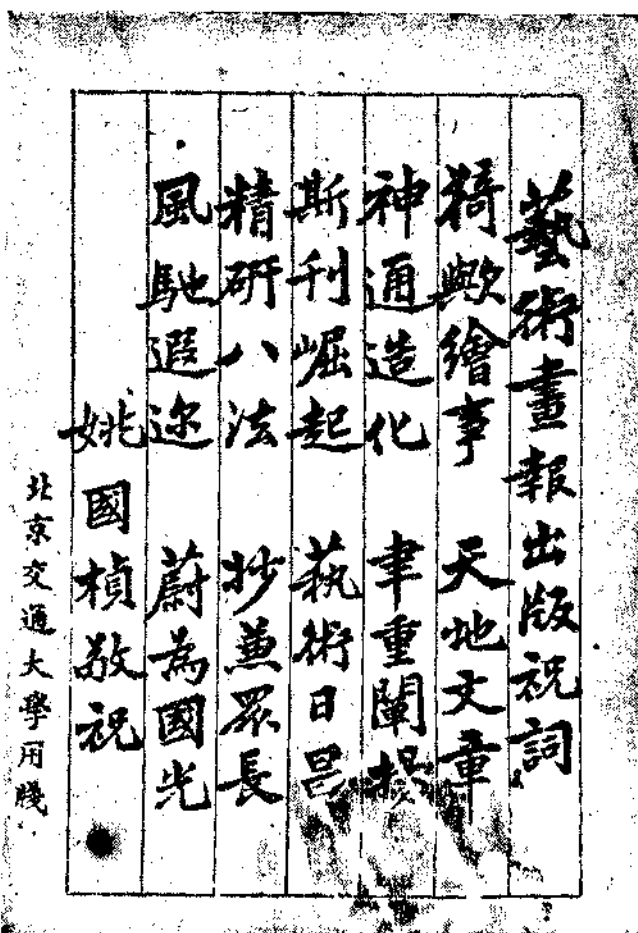 藝術畫報出版祝詞
猗歟繪事 天地文章
神通造化 聿重闡揚
斯刊崛起 藝術日昌
精研八法 抄兼眾長
風馳遐迩 蔚為國光
姚國楨敬祝
北京交通大學用牋